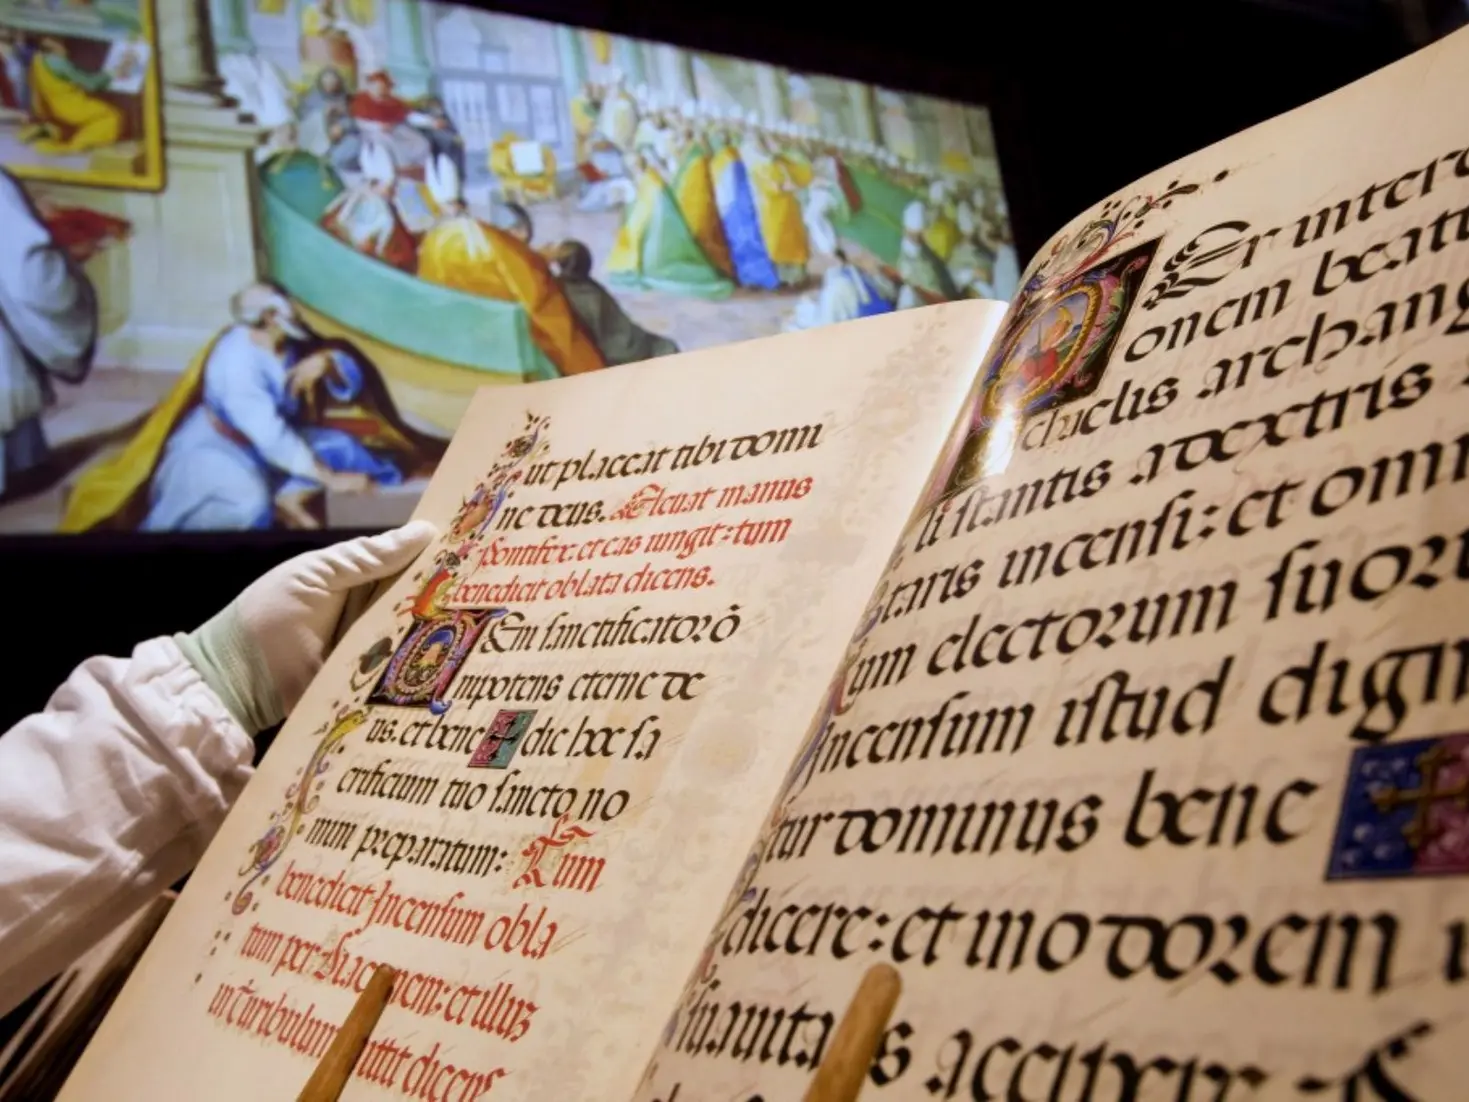 ut placeat tibi domi
ne deus. Eleuat manus
Pontifex: et eas iungit: tum
benedicit oblata dicens.
Veni sanctificator õ
mnipotens eterne de
us. et bene ✠ dic hoc sa
crificium tuo sancto no
mini preparatum: Tum
benedicit Incensum obla
tum per Diaconem: et illud
in Turibulum mittit dicens
Per interc
onem beati
chaelis archang
li stantis a dextris
taris incensi: et omni
um electorum suor
incensum istud dign
tur dominus bene ✠
dicere: et in odorem
suauita s accipere